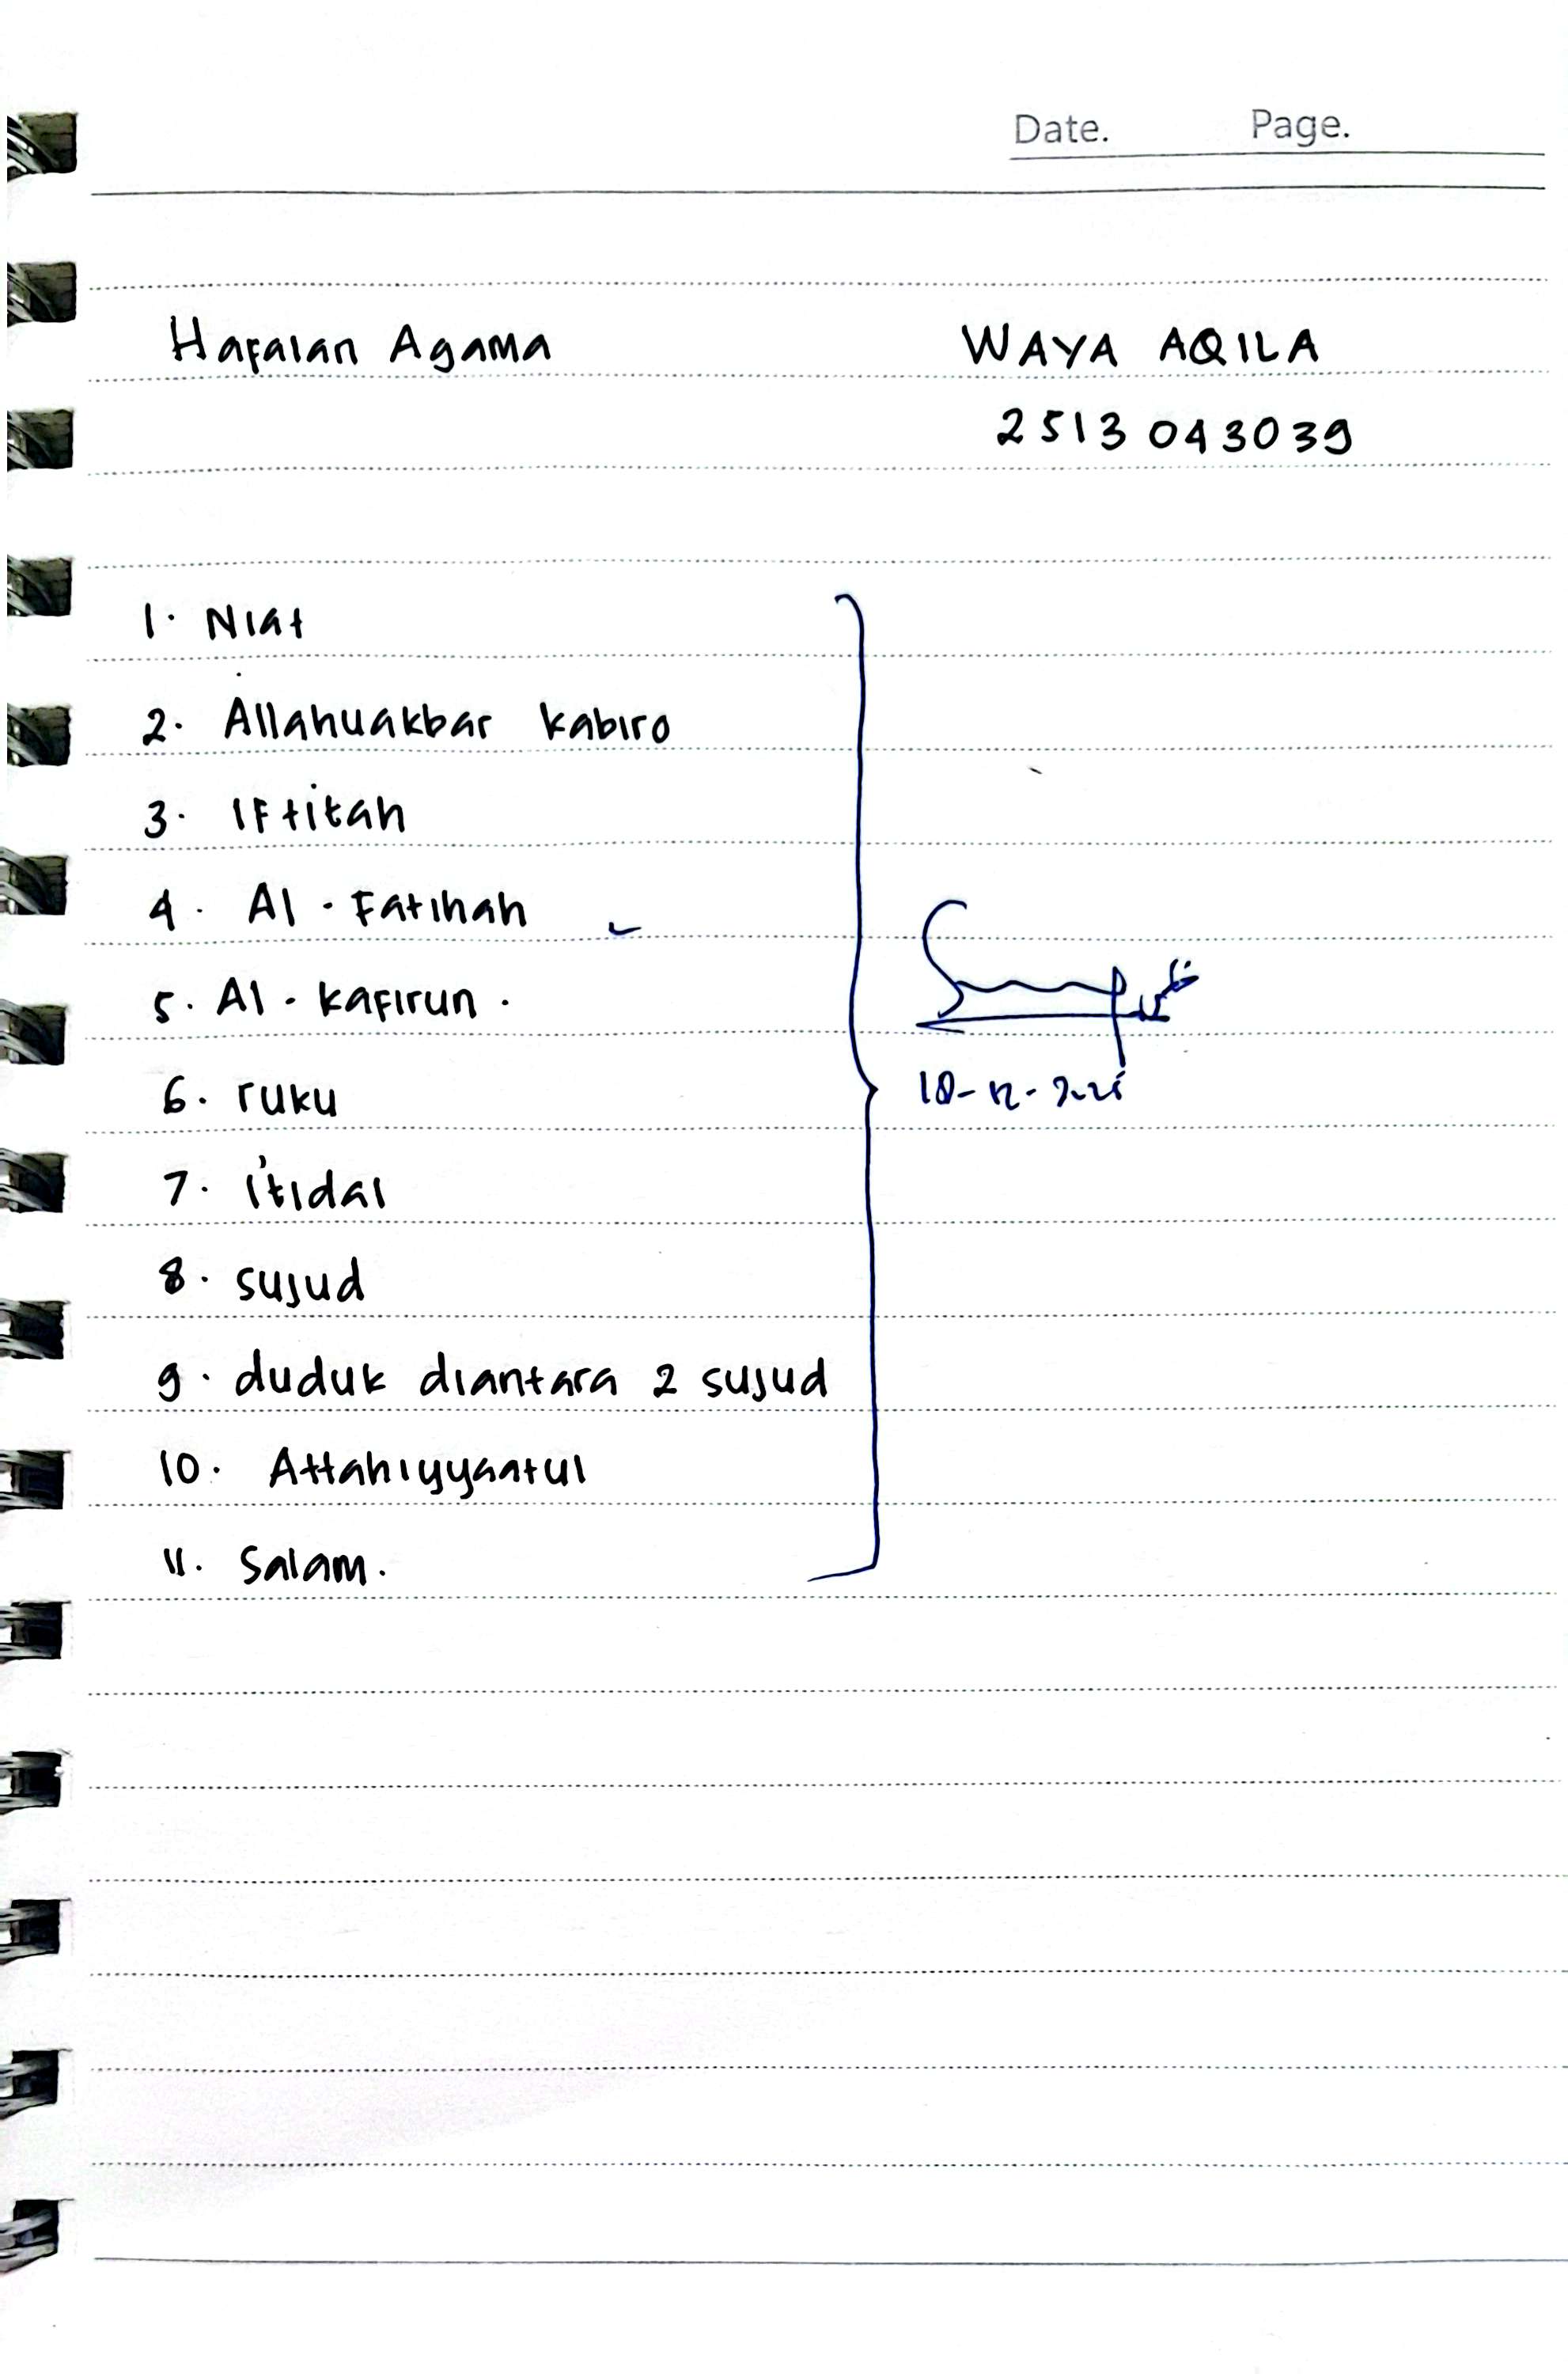 Date. Page.
Hafalan Agama WAYA AQILA
2513043039
1. Niat
2. Allahuakbar kabiro
3. Iftitah
4. Al-Fatihah
5. Al-kafirun.
6. ruku
7. i'tidal
8. sujud
9. duduk diantara 2 sujud
10. Attahiyyaatul
11. Salam.